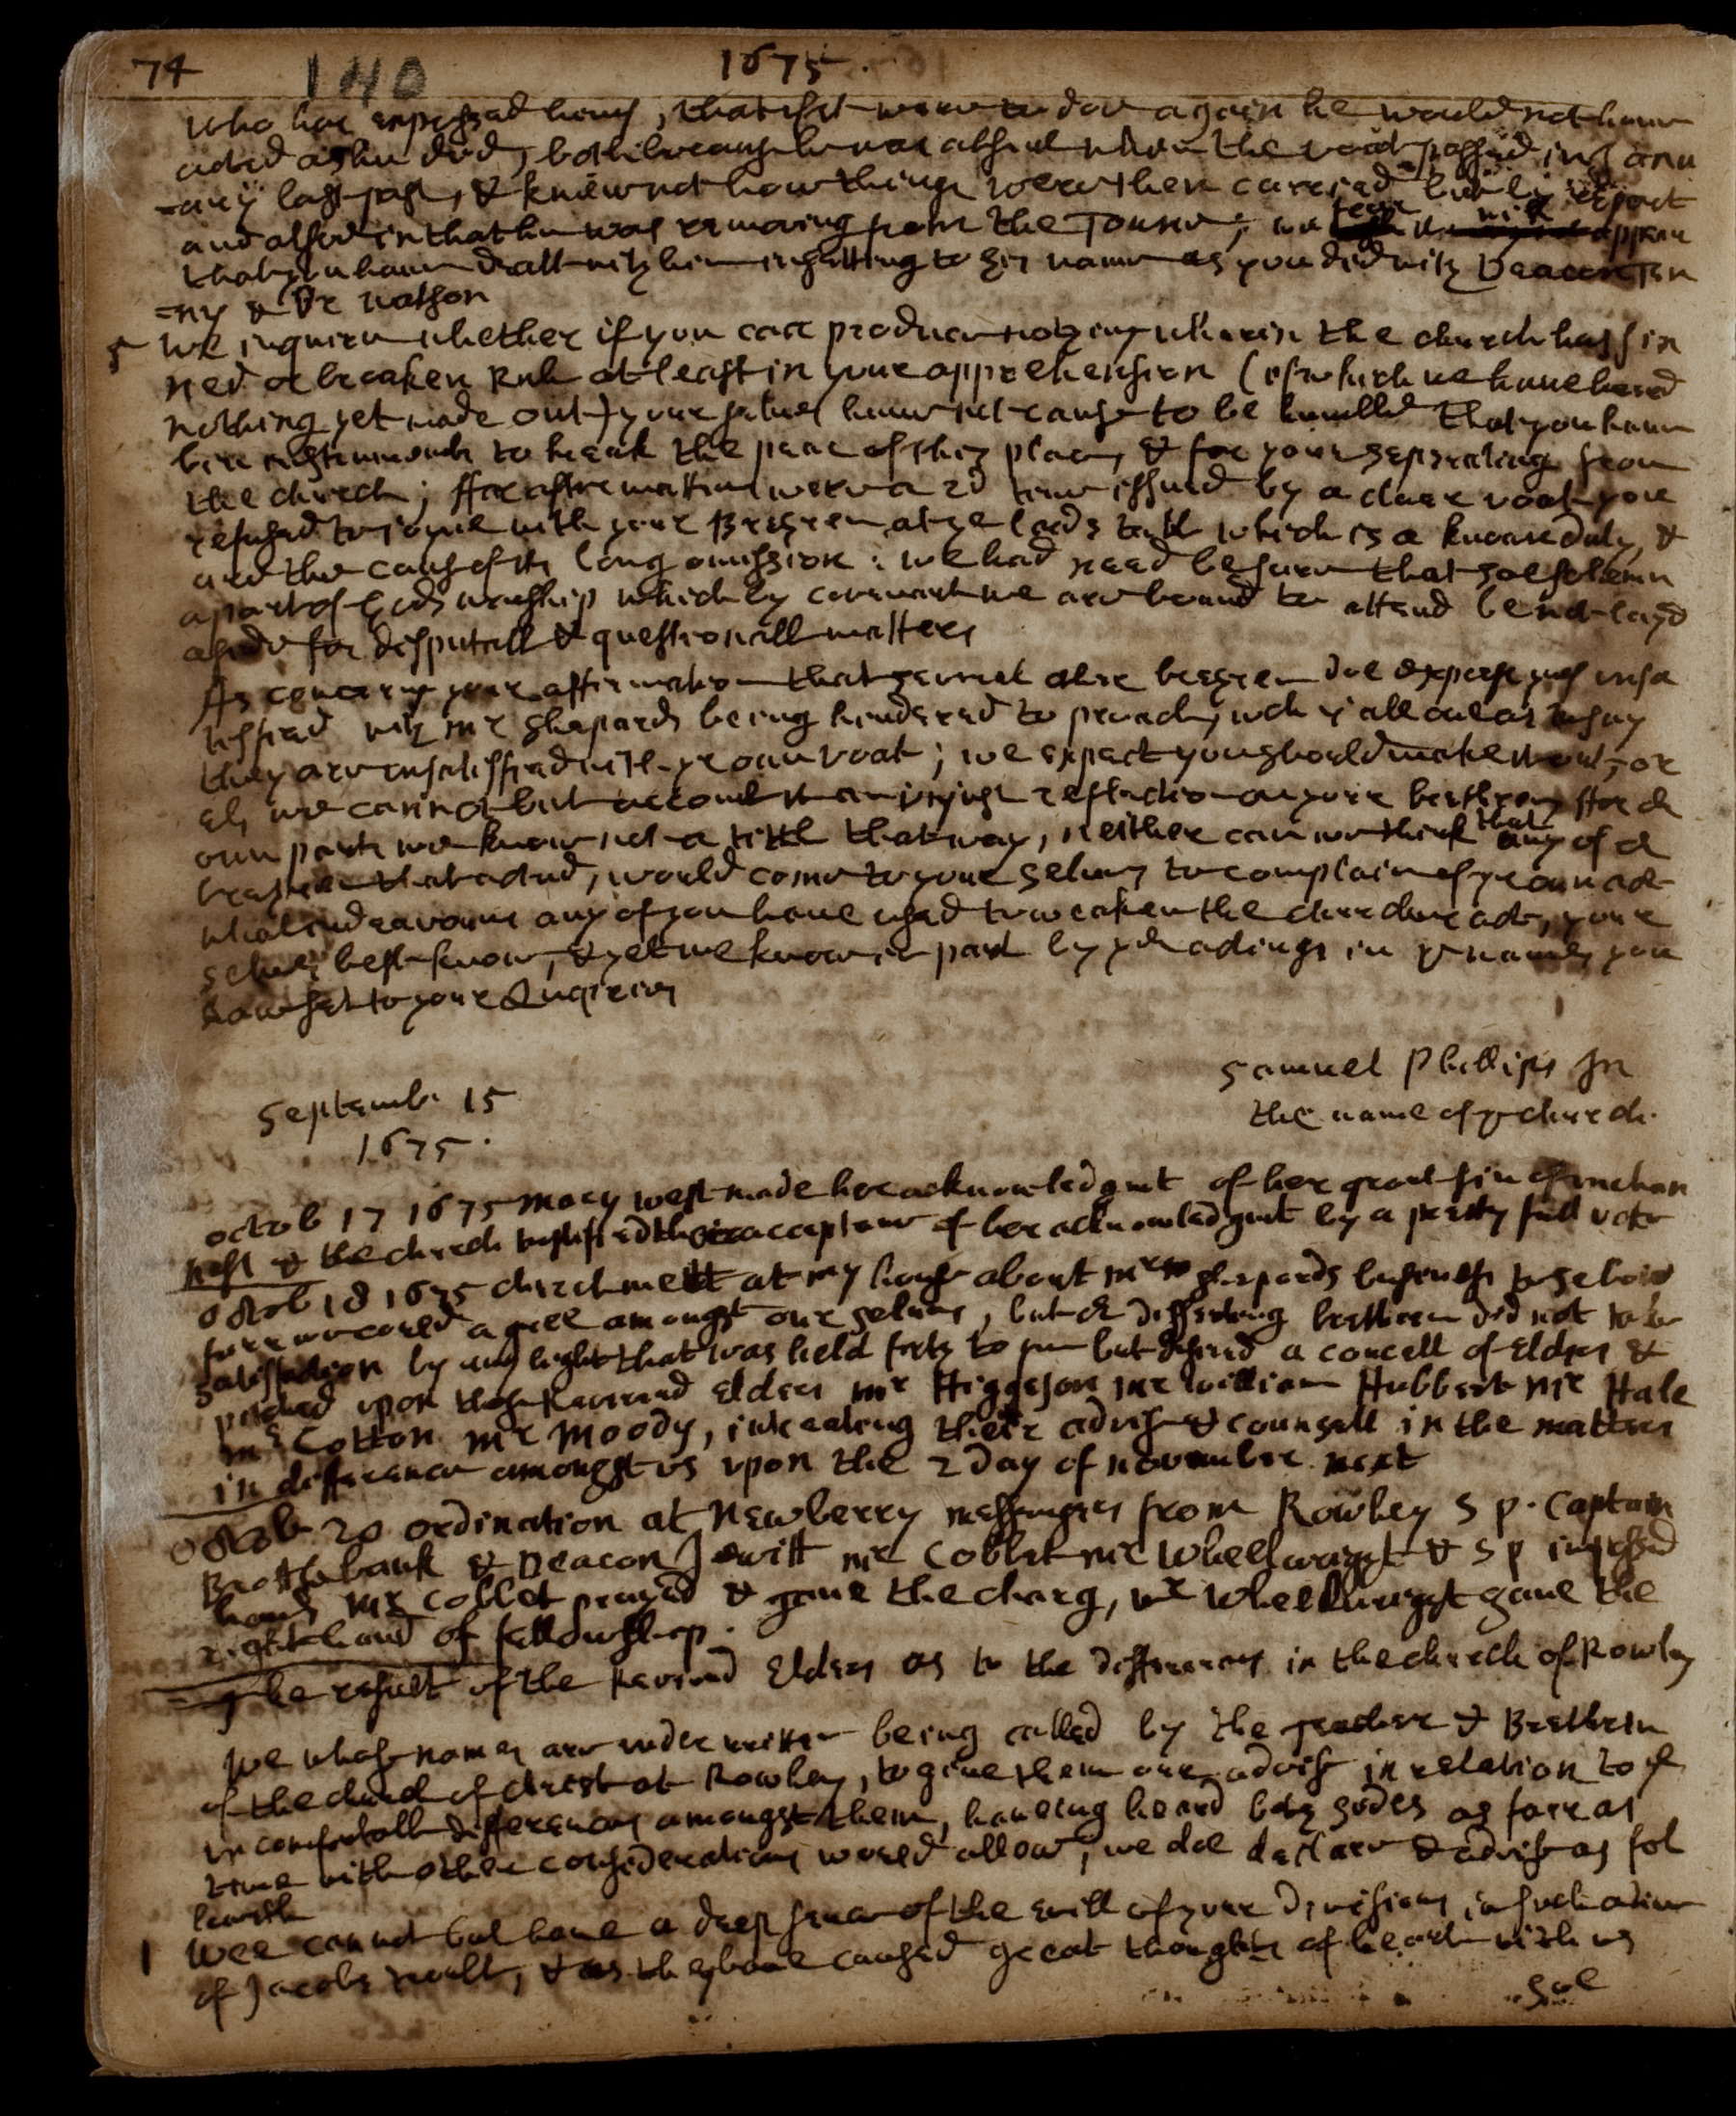 74 140 1675.
who hav expressed himself, that if it were to doe again he would not have
acted as he did, both because he was absent when the voat passed in Janu
=ary last past, & knew not how things were then carried but by report
and alsoe in that he was removing from the Towne; we fear it will appear
that you have dealt with him in setting to his name as you did with Deacon Jen
=ny & Br watson
5 We inquire whether if you can produce nothing wherin the church has sin
ned or broaken Rule at least in your apprehension (of which we have heard
nothing yet made out) your selves have not cause to be humbled that you have
bin instruments to break the peace of this place, & for your separating from
the church; for after matters were a 2d time issued by a clear voat you
refused to joyne with your Brethren at ye lords table which is a knowne duty, &
are the cause of its long omission: we had need be sure that soe solemn
a part of gods worship which by covenant we are bound to attend be not layd
aside for disputall & questionall matters
As concerning your affirmation that severall other brethren doe express yms unsa
tisfied with mr Shepards being hindered to preach, wch is all one as to say
they are unsatisfied with ye own voat; we expect you should make it out, or
els we cannot but account it an unjust reflection on your brethren, for
our parts we know not a tittle that way, neither can we think that any of
brethren that acted, would come to your selves to complain of yr own act
what indeavours any of you have used to weaken the church act, your
selves best know, & yet we know in part by yr actings in ye names you
have set to your Inquiries
Samuel Phillips In
the name of ye church.
Septemb. 15
1675.
octob 17 1675 Mary west made her acknowledgmt of her great sin of unchas
ness & the church testified their acceptanc of her acknowledgmt by a pretty full vote
octob 18 1675 church mett at my house about mr Shepards business to se how
farr we could agree amongst our selves, but dissenting brethren did not take
satisfaction by any light that was held forth to ym but desired a councell of Elders &
pitched upon these Reverend Elders mr Higgeson mr william Hubbert mr Hale
mr Cotton mr Moody, intreating their advise & counsell in the matters
in difference amongst us upon the 2 day of november next
octob 20 ordination at Newberry messengers from Rowley S P. Captain
Brocklebank & Deacon Jewitt mr Cobbet mr Wheelwright & S P imposed
hands mr Cobbet prayed & gave the charg, mr Wheelwright gave the
right hand of fellowship.
The result of the Reverend Elders as to the differences in the church of Rowley
We whose names are underwritten being called by the Teacher & Brethren
of the church of christ at Rowley, to give them our advise in relation to ye
uncomfortable differences amongst them, haveing heard both sides as farr as
time with other considerations would allow, we doe declare & advise as fol
loweth
1 Wee cannot but have a deep sence of the evill of your divisions in such a time
of Jacobs trouble, & as they have caused great thoughts of heart with us
soe